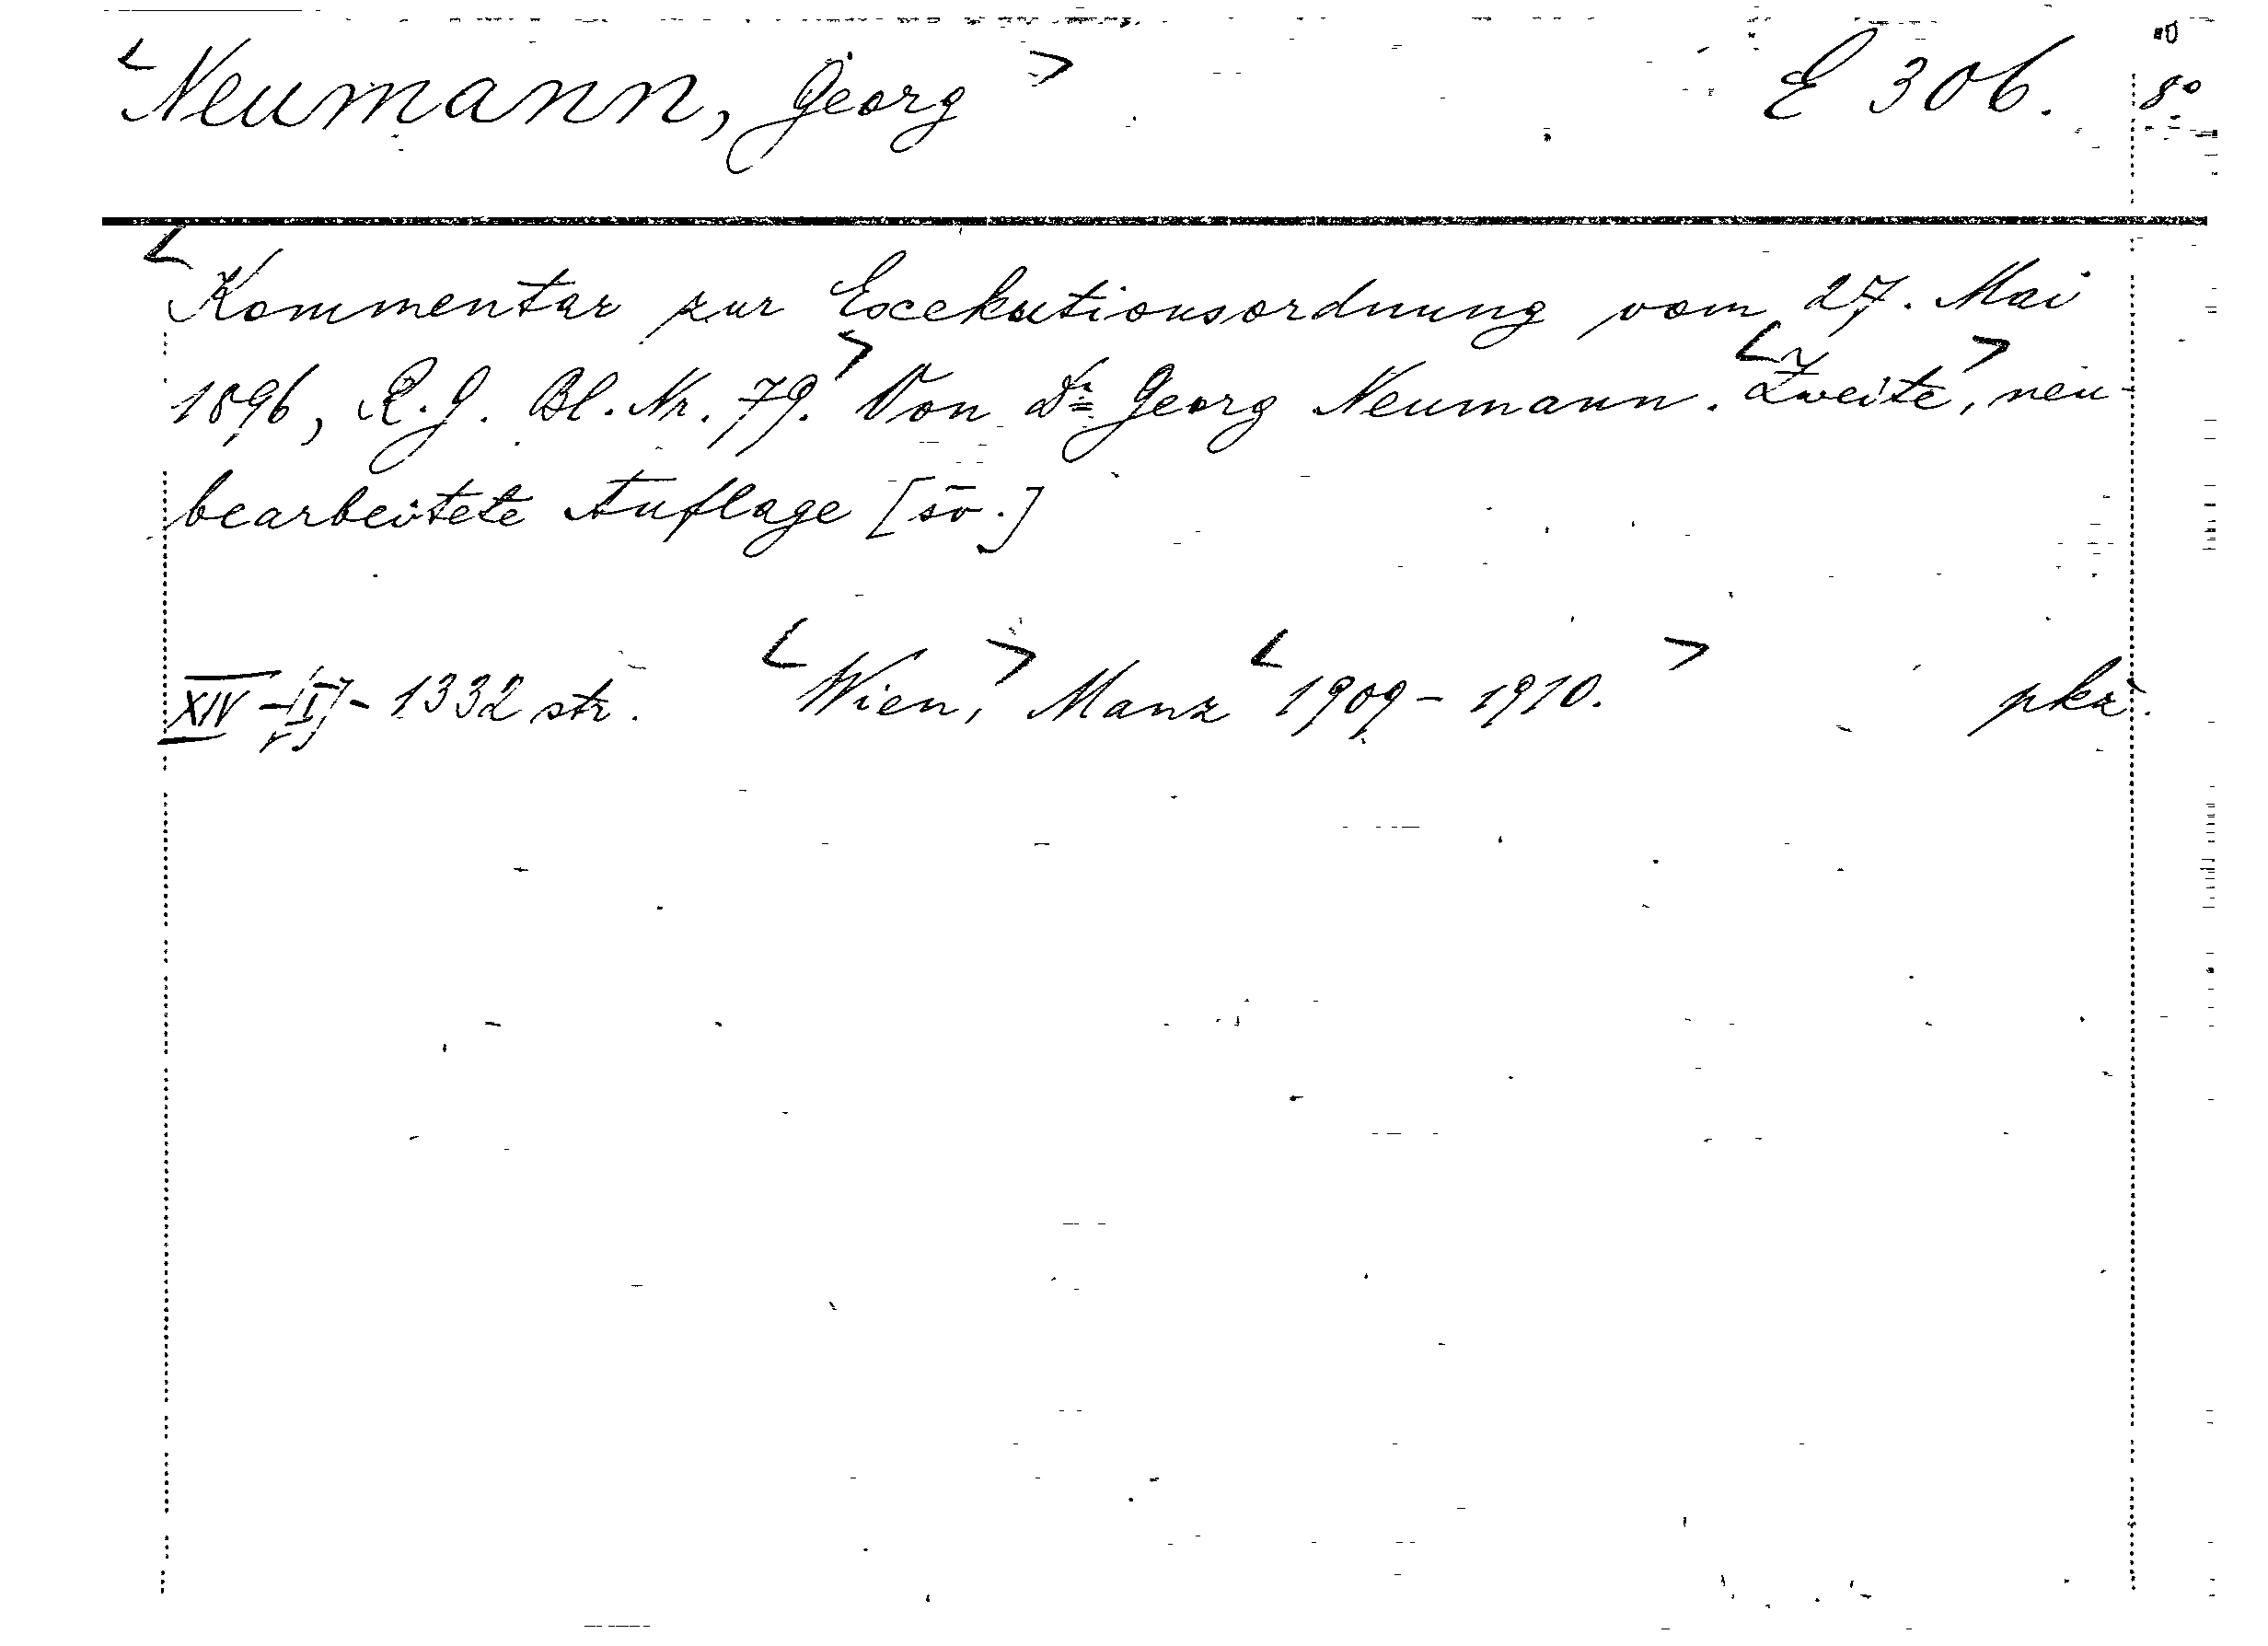 <Neumann, Georg> E 306. 8°
<Kommentar zur Exekutionsordnung vom 27. Mai
1896, R. G. Bl. Nr. 79.> Von Dr Georg Neumann. <Zweite>, neu-
bearbeitete Auflage [sv.]
XIV-[I]-1332 str. <Wien,> Manz <1909-1910.> pkř.